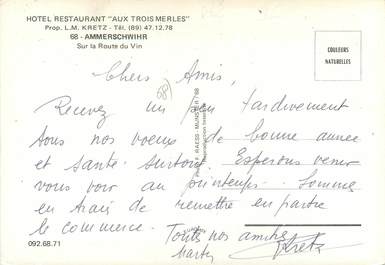 HOTEL RESTAURANT "AUX TROIS MERLES"
Prop. L.M. KRETZ - Tél. (89) 47.12.78
68 - AMMERSCHWIHR
Sur la Route du Vin
COULEURS
NATURELLES
Chers Amis,
Recevez un peu tardivement
tous nos voeux de bonne année
et santé surtout. Esperons venir
vous voir au printemps. Sommes
en train de remettre en partie
le commerce. Toutes nos amitiés
Kretz
092.68.71